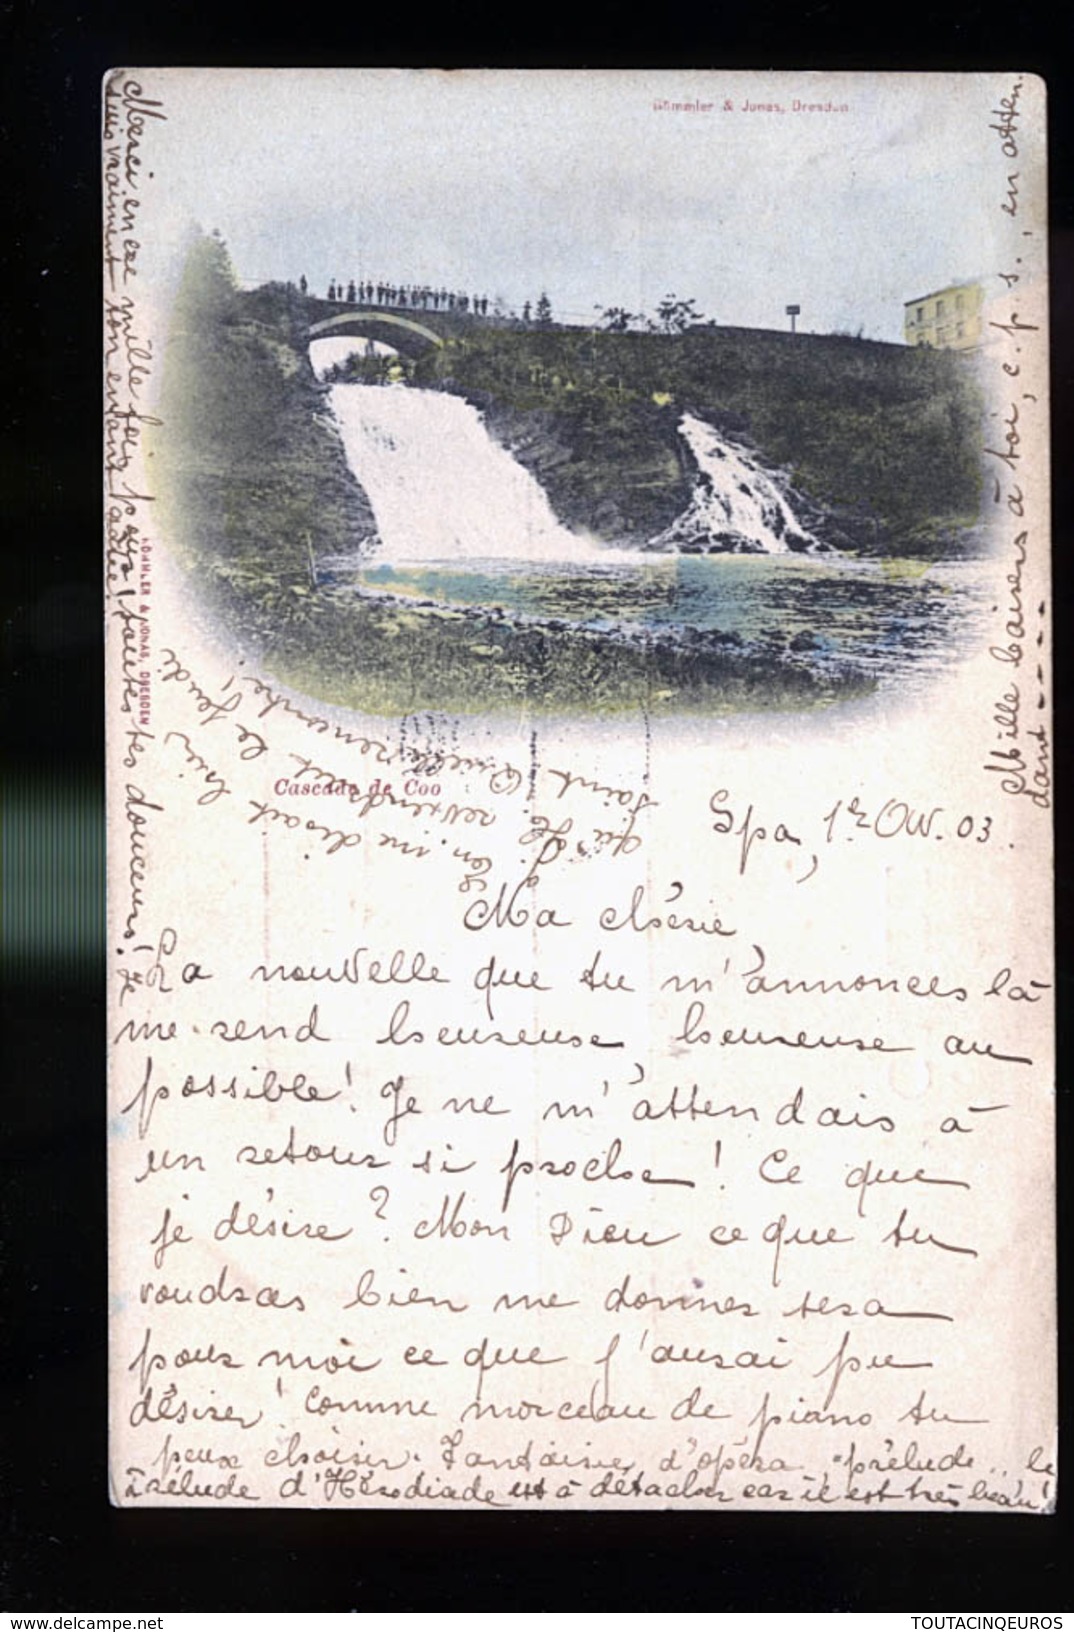 Römmler & Jonas, Dresden
Cascade de Coo
RÖMMLER & JONAS, DRESDEN
Spa, 1er Oct. 03.
Ma chérie,
La nouvelle que tu m'annonces là
me rend heureuse, heureuse au
possible! Je ne m'attendais à
un retour si proche! Ce que
je désire? Mon Dieu ce que tu
voudras bien me donner sera
pour moi ce que j'aurai pu
désirer! Comme morceau de piano tu
peux choisir. Fantaisie d'opéra "prélude" le
prélude d'Hérodiade est à détacher car il est très beau!
on me disait hier,
qu'H. reviendrait le jeudi
saint Quelle rencontre!
Merci encore mille fois pour toutes tes douceurs! Je
suis vraiment ton enfant gâtée!
Mille baisers à toi, c. p. s. , en atten
dant - - - -
https://www.delcampe.net
TOUTACINQEUROS